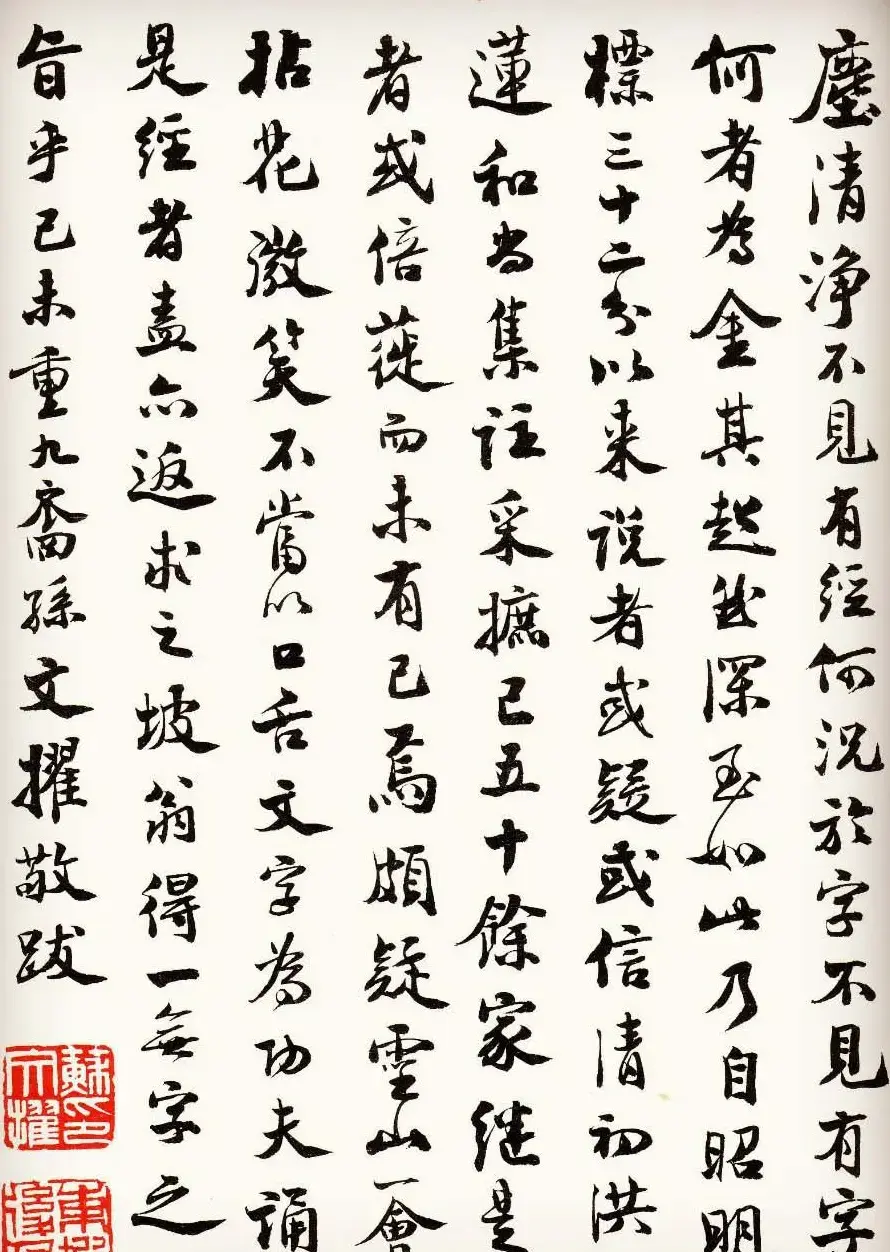 塵清淨不見有經何況於字不見有字
何者為金其超然深至如此乃自昭明
標三十二分以来説者或疑或信清初洪
蓮和尚集註采摭已五十餘家継是
者或倍蓰而未有已焉頗疑靈山一會
拈花微笑不當以口舌文字為功夫誦
是經者盍亦返求之坡翁得一無字之
旨乎己未重九裔孫文擢敬跋
蘇文擢印